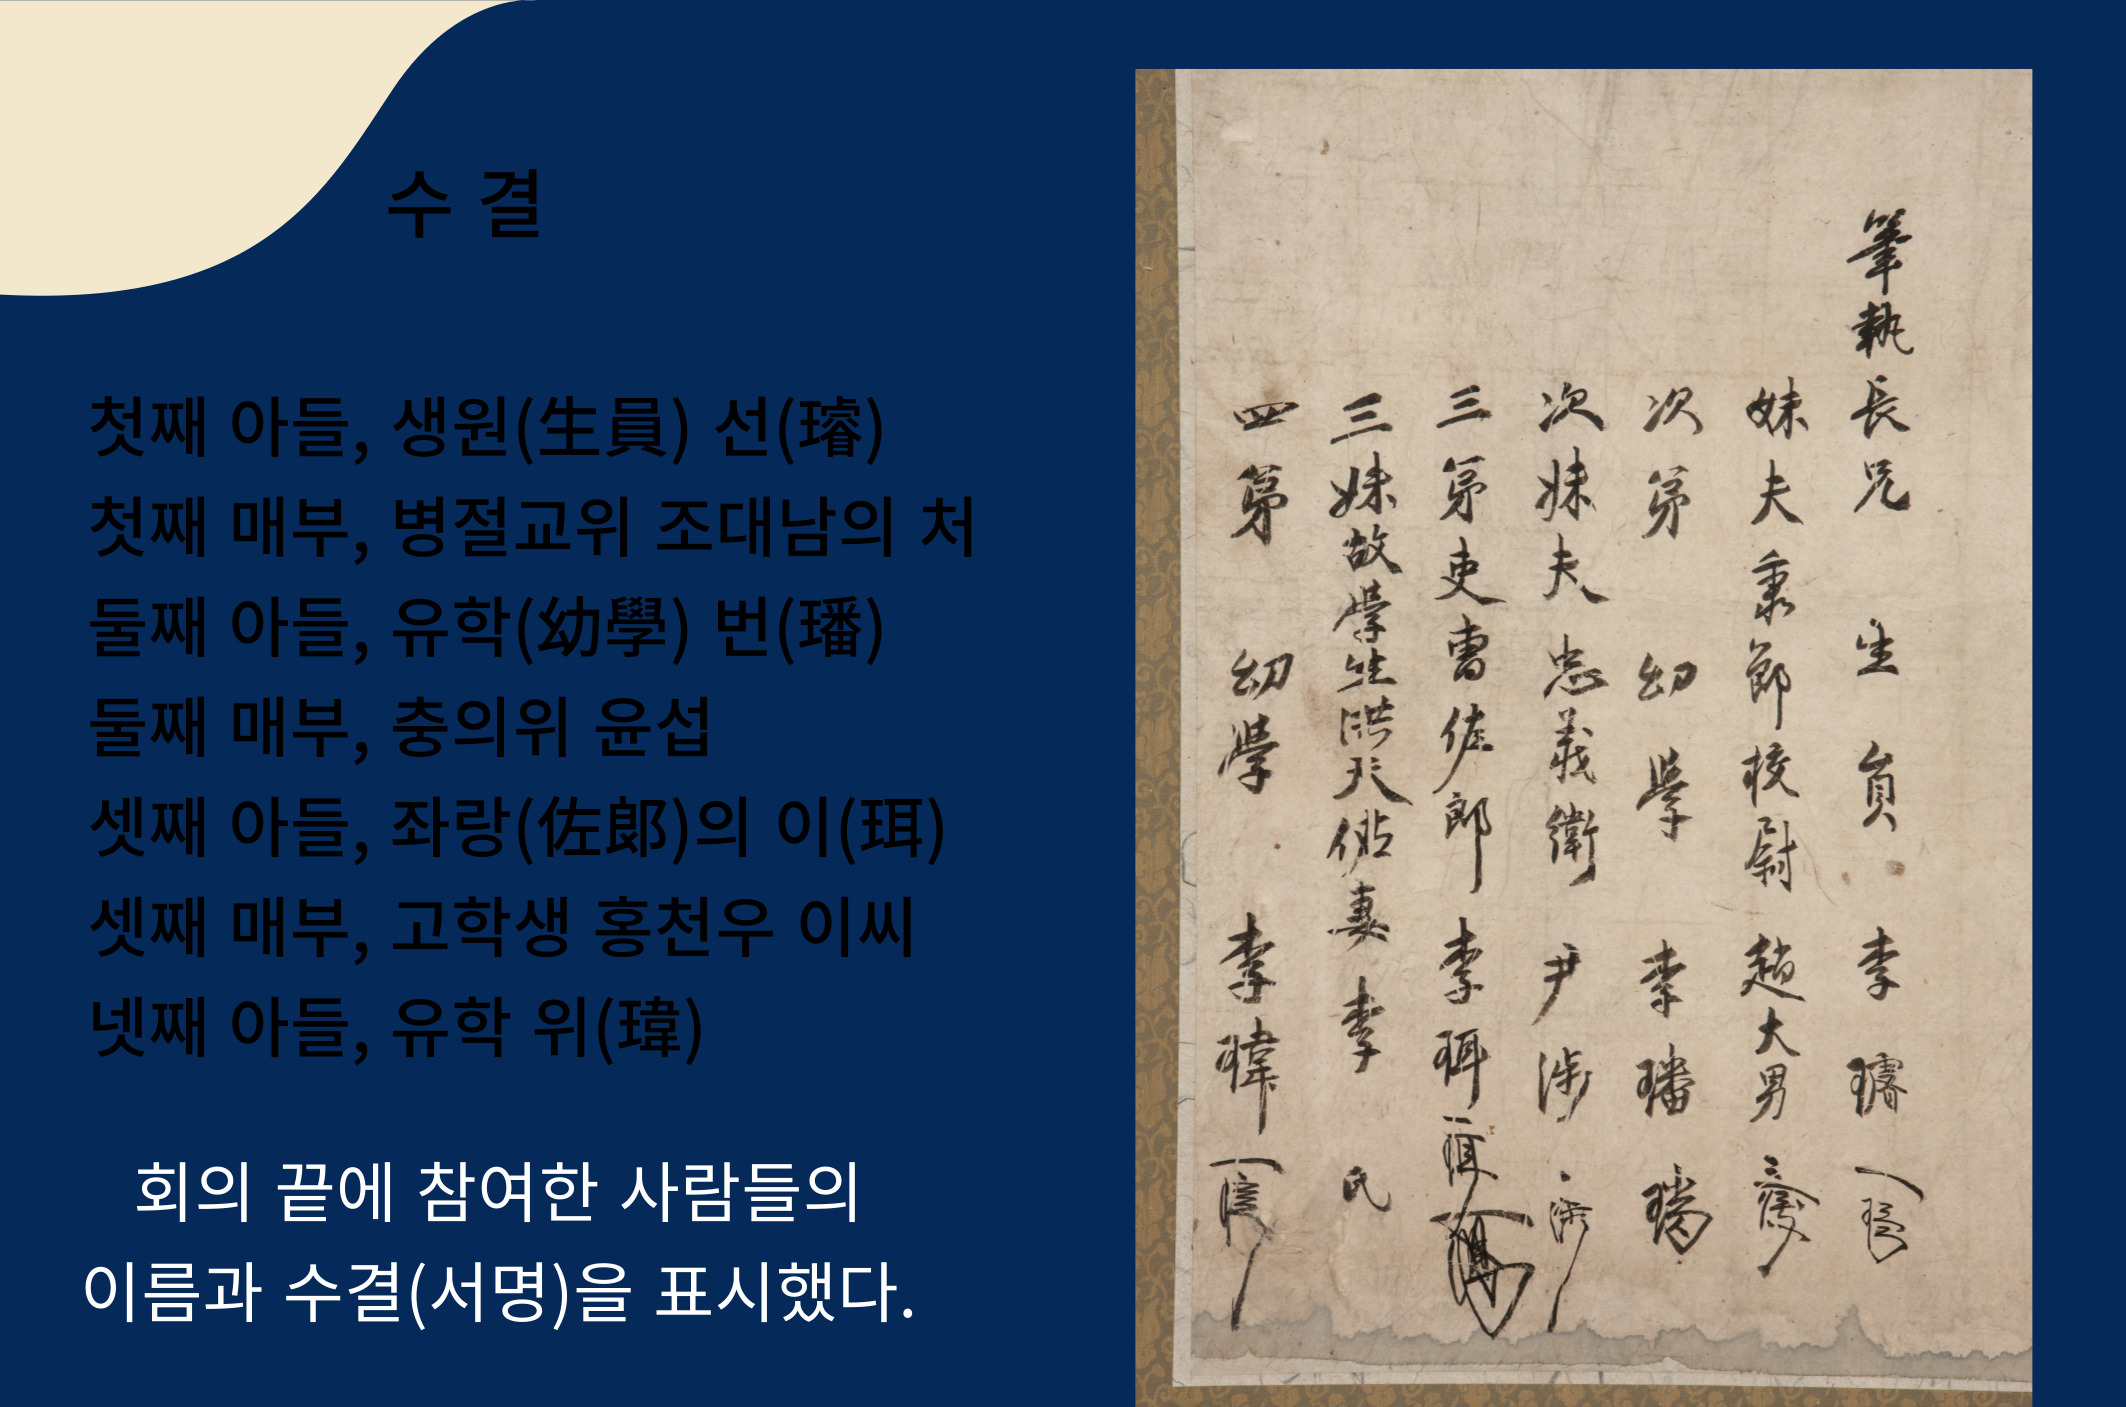 수 결
첫째 아들, 생원(生員) 선(璿)
첫째 매부, 병절교위 조대남의 처
둘째 아들, 유학(幼學) 번(璠)
둘째 매부, 충의위 윤섭
셋째 아들, 좌랑(佐郞)의 이(珥)
셋째 매부, 고학생 홍천우 이씨
넷째 아들, 유학 위(瑋)
회의 끝에 참여한 사람들의
이름과 수결(서명)을 표시했다.
筆執長兄 生員 李璿
妹夫秉節校尉趙大男
次弟 幼學 李璠
次妹夫忠義衛 尹涉
三弟吏曹佐郎 李珥
三妹故學生洪天佑妻 李 氏
四弟 幼學 李瑋